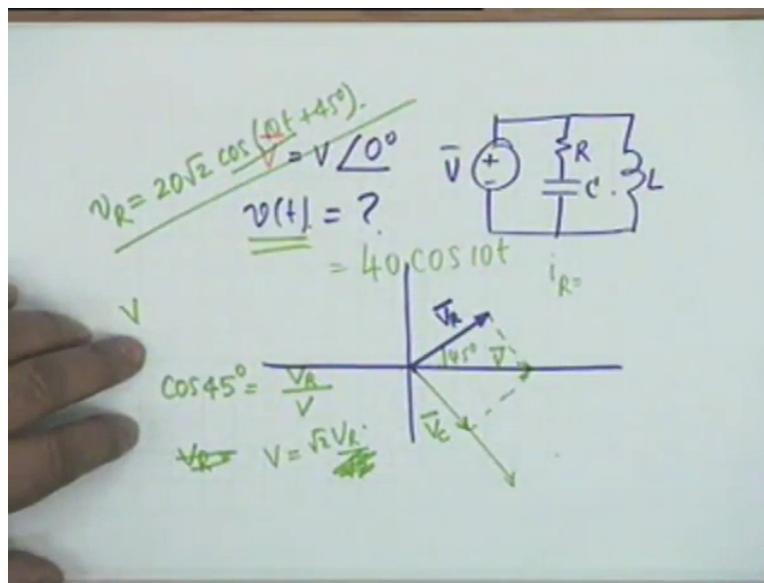 v_R = 20√2 cos(10t + 45°).
V̄ = V ∠0°
v(t) = ?
= 40 cos 10t
V̄
+
-
R
C
L
i_R =
V
V̄_R
45°
V̄
V̄_C
cos 45° = V_R / V
V_R
V = √2 V_R